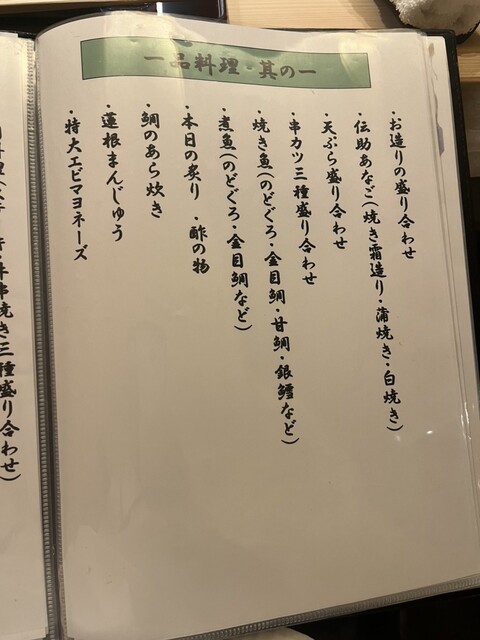 一品料理・其の一
・お造りの盛り合わせ
・伝助あなご(焼き霜造り・蒲焼き・白焼き)
・天ぷら盛り合わせ
・串カツ三種盛り合わせ
・焼き魚(のどぐろ・金目鯛・甘鯛・銀鱈など)
・煮魚(のどぐろ・金目鯛など)
・本日の炙り ・酢の物
・鯛のあら炊き
・蓮根まんじゅう
・特大エビマヨネーズ
串焼き三種盛り合わせ)